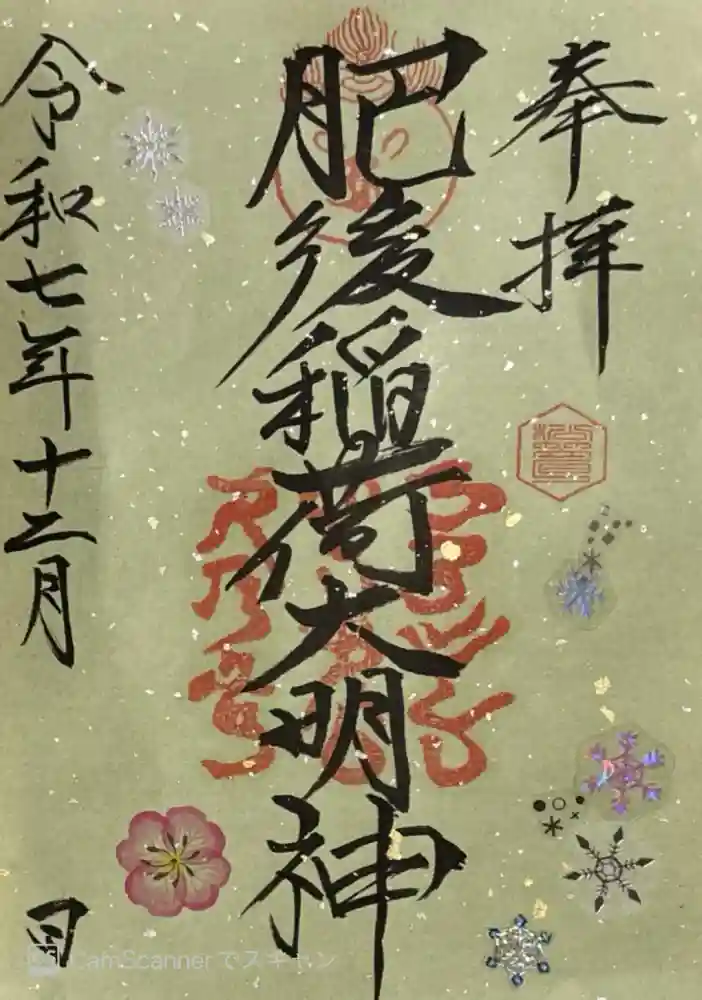 奉拝
肥後稲荷大明神
令和七年十二月 日
CamScannerでスキャン